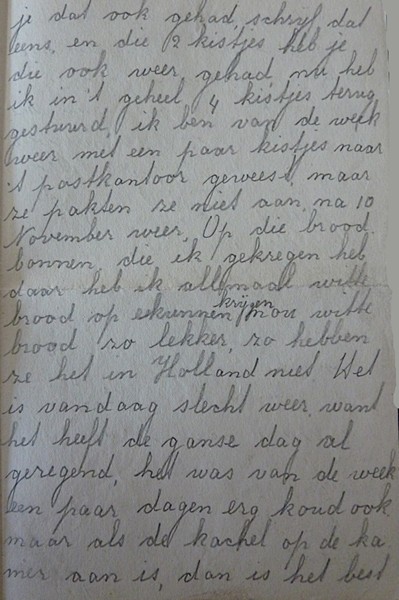 je dat ook gehad, schrijf dat
eens, en die 2 kistjes heb je
die ook weer gehad, nu heb
ik in 't geheel 4 kistjes terug
gestuurd, ik ben van de week
weer met een paar kistjes naar
't postkantoor geweest, maar
ze pakten ze niet aan, na 10
November weer. Op die brood
bonnen, die ik gekregen heb
daar heb ik allemaal witte
brood op ekunnen krijgen, nou witte
brood zo lekker, zo hebben
ze het in Holland niet Het
is vandaag slecht weer, want
het heeft de ganse dag al
geregend, het was van de week
een paar dagen erg koud ook
maar als de kachel op de ka
mer aan is, dan is het best